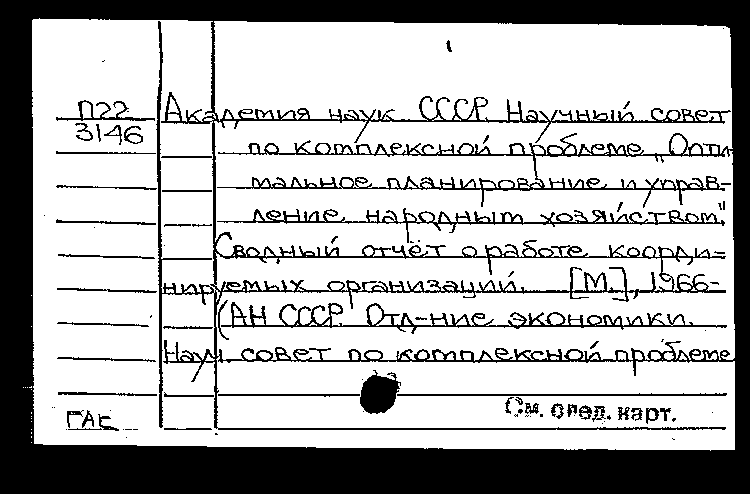 П22
3146
Академия наук СССР. Научный совет
по комплексной проблеме „Опти-
мальное планирование и управ-
ление народным хозяйством".
Сводный отчёт о работе коорди-
нируемых организаций. [М.], 1966-
(АН СССР. Отд-ние экономики.
Науч. совет по комплексной проблеме
См. след. карт.